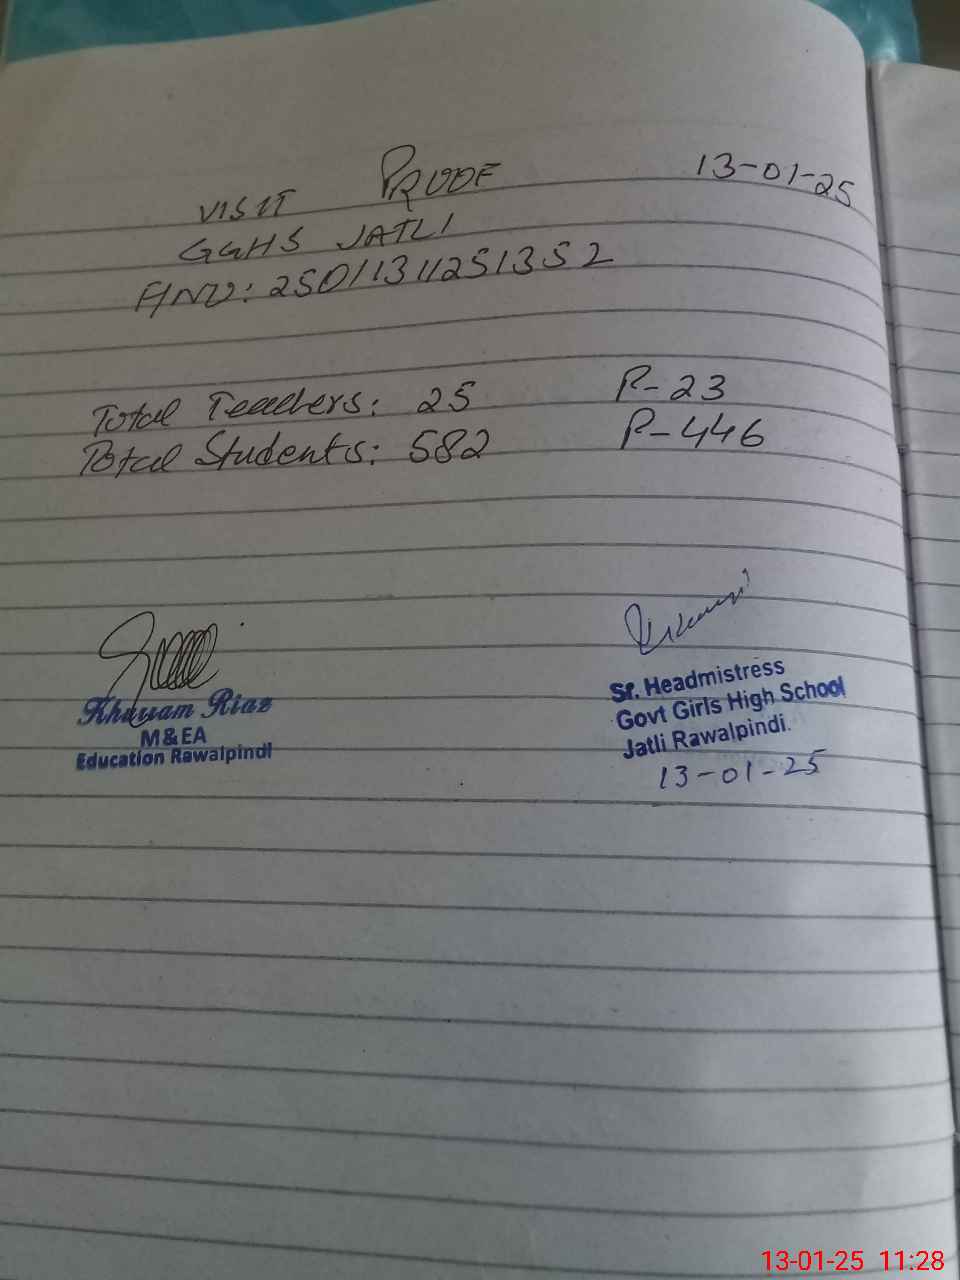 VISIT PROOF 13-01-25
GGHS JATLI
A/NO: 25011311251352
Total Teachers: 25 P-23
Total Students: 582 P-446
Khurram Riaz
M&EA
Education Rawalpindi
Sr. Headmistress
Govt Girls High School
Jatli Rawalpindi.
13-01-25
13-01-25 11:28